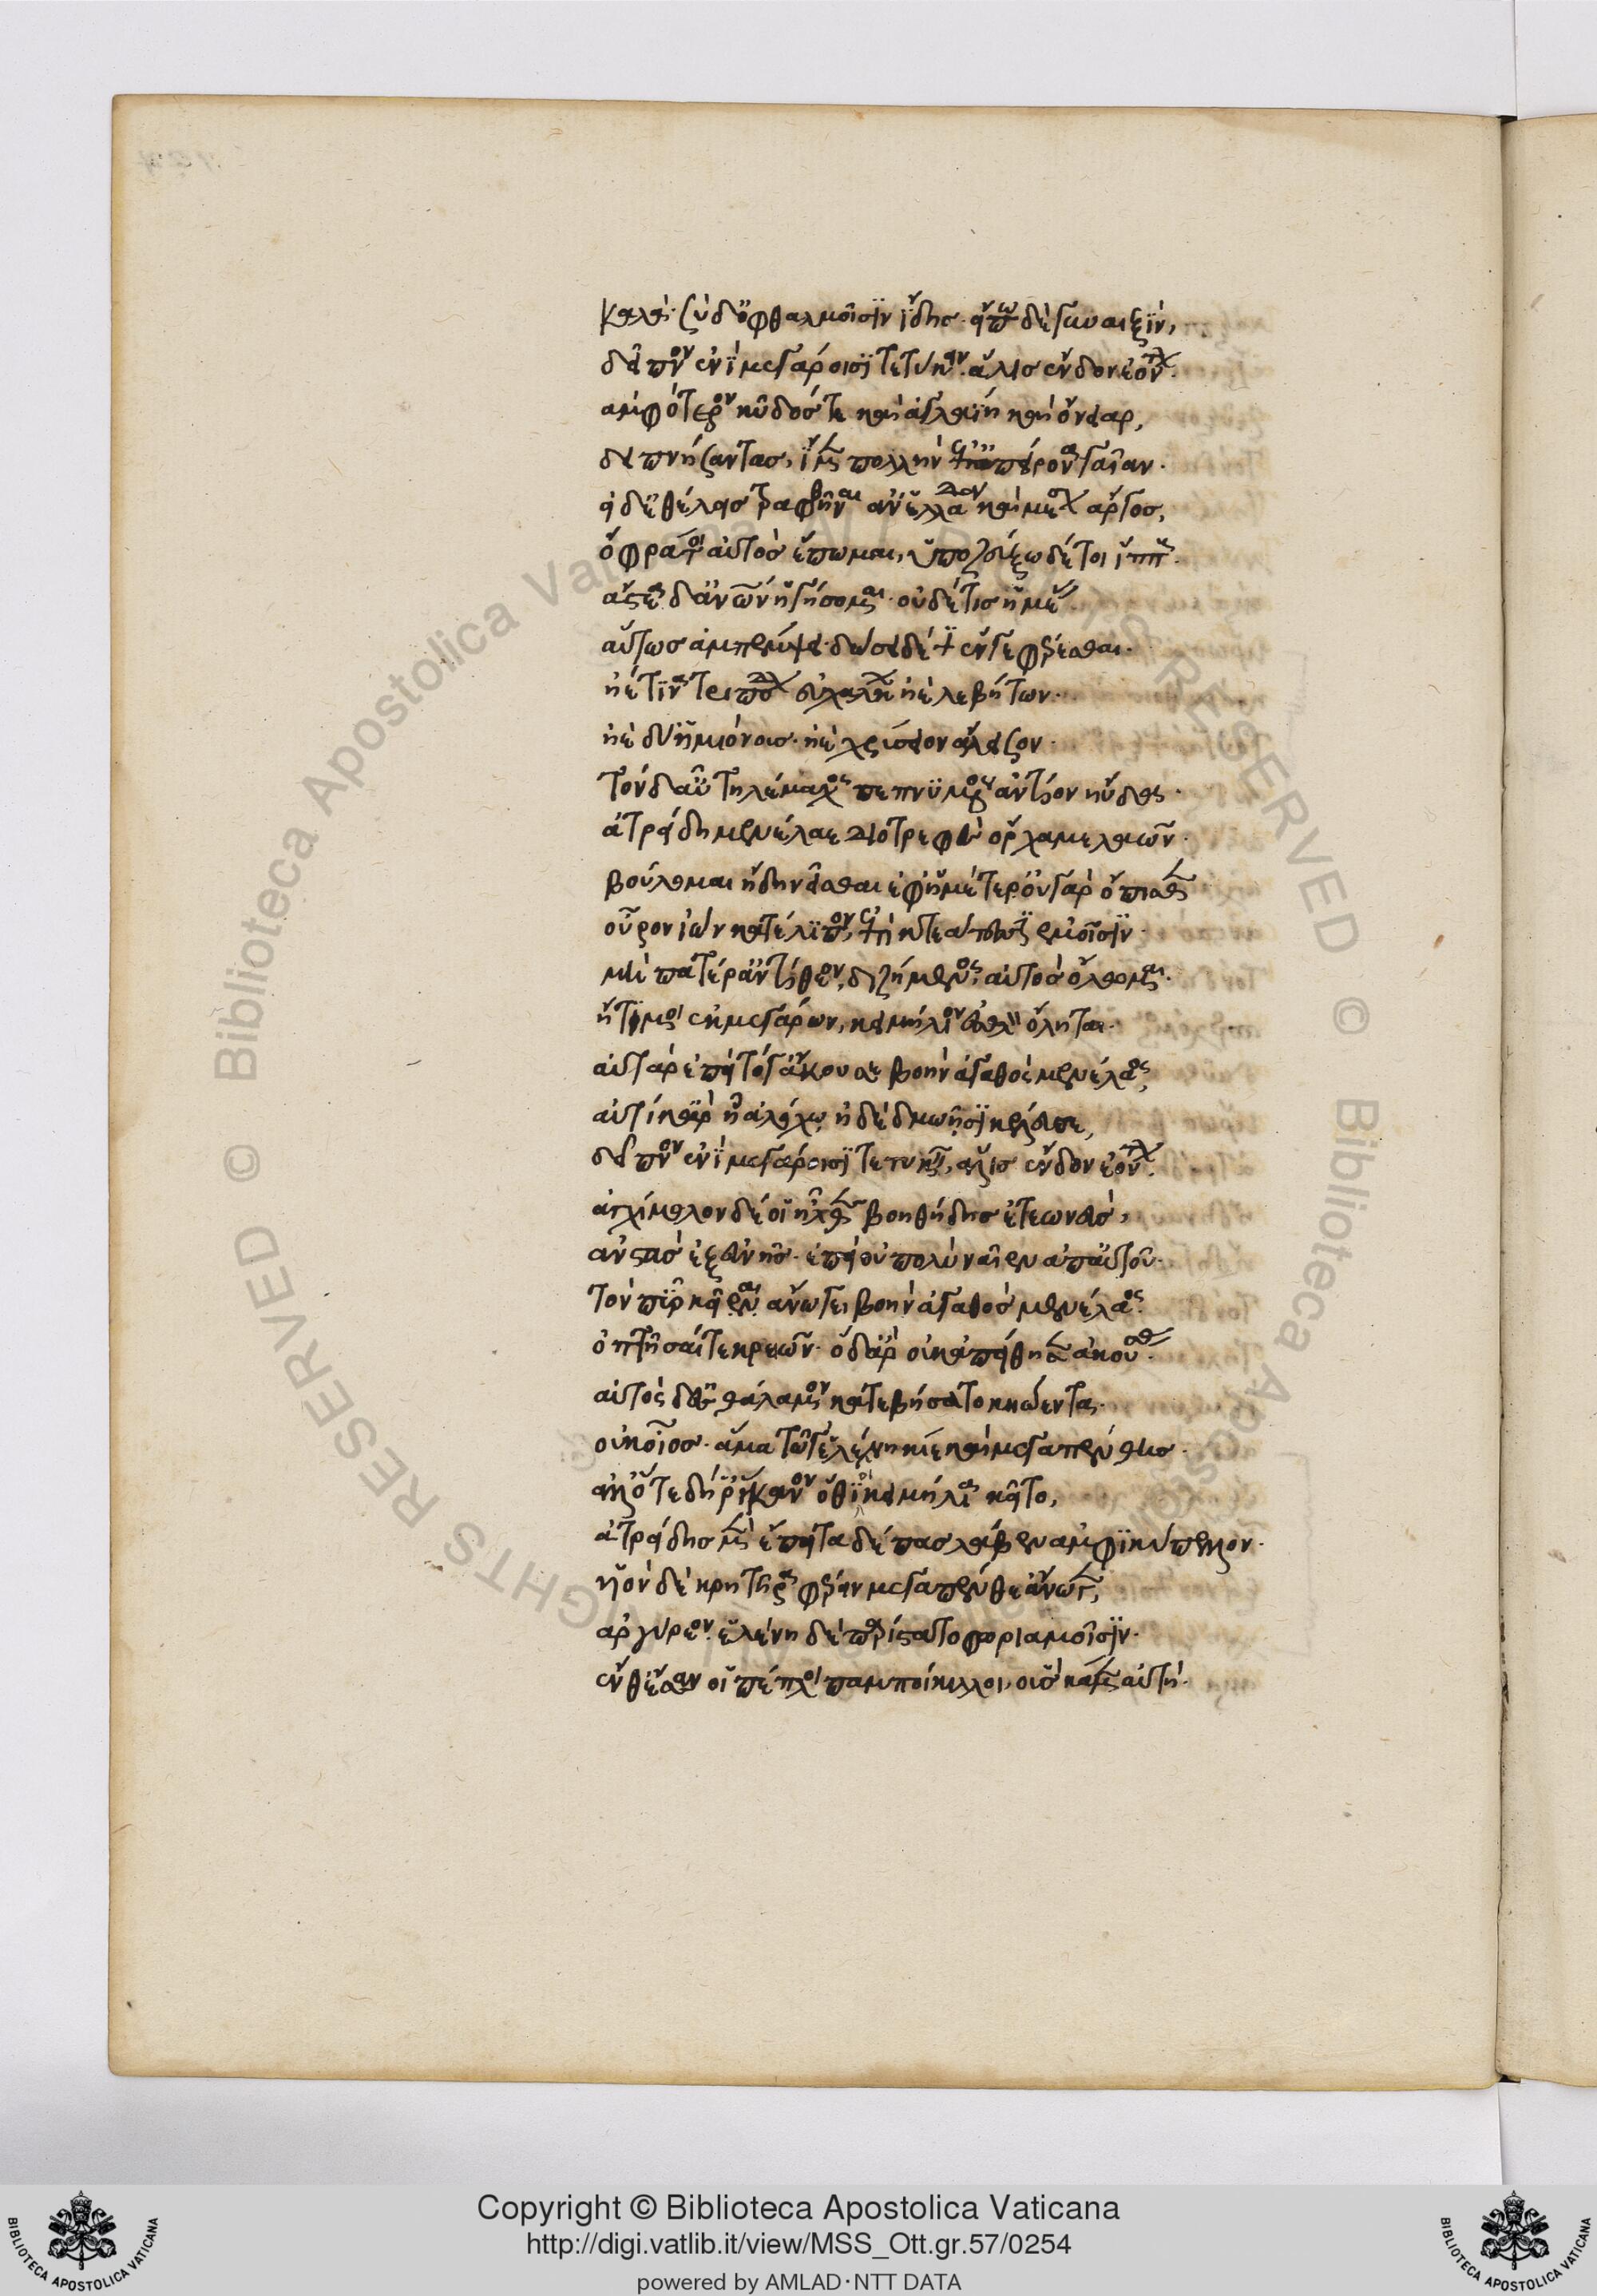 καλά· σὺ δ' ὀφθαλμοῖσϊν ἴδης· εἴπω δὲ γυναιξὶν,
δεῖπνον ἐνὶ μεγάροισϊ τετυκεῖν ἅλισ ἔνδον ἐόντων.
ἀμφότερον κῦδόσ τε καὶ ἀγλαΐη καὶ ὄνειαρ,
δειπνήσαντασ, ἴμεν πολλὴν ἐπ' ἀπείρονα γαῖαν.
εἰ δ' ἐθέλεισ τραφθῆναι ἀν' ἑλλάδα καὶ μέσον ἄργοσ,
ὄφρά τοι αὐτὸσ ἕπωμαι, ὑποζεύξω δέ τοι ἵππους.
ἄστεα δ' ἀνθρώπων ἡγήσομαι· οὐδέ τισ ἡμέας
αὔτωσ ἀμπέμψει· δώσει δέ τι ἕν γε φέρεσθαι.
ἠέ τϊνα τριπόδων εὐχάλκων ἠὲ λεβήτων.
ἠὲ δύ' ἡμιόνουσ· ἠὲ χρύσειον ἄλεισον.
τὸν δ' αὖ τηλέμαχος πεπνϋμένος ἀντίον ηὔδα.
ἀτρείδη μενέλαε διοτρεφὲσ ὄρχαμε λαῶν.
βούλομαι ἤδη νεῖσθαι ἐφ' ἡμέτερ' οὐ γὰρ ὄπισθεν
οὖρον ἰὼν κατέλιπον, ἐπὶ κτεάτεσσιν ἐμοῖσϊν.
μὴ πατέρ' ἀντίθεον, διζήμενος, αὐτὸσ ὄλωμαι.
ἤ τι μοι ἐκ μεγάρων, κειμήλιον ἐσθλὸν ὄληται.
αὐτὰρ ἐπεὶ τό γ' ἄκουσε βοὴν ἀγαθὸς μενέλαος,
αὐτίκ' ἄρ' ἧ ἀλόχω ἠδὲ δμωῆσϊ κέλευσε,
δεῖπνον ἐνὶ μεγάροισϊ τετυκεῖν, ἅλισ ἔνδον ἐόντων.
ἀγχίμολον δέ οἱ ἦλθεν βοηθήδησ ἐτεωνεὺσ,
ἀνστὰσ ἐξ εὐνῆσ· ἐπεὶ οὐ πολὺ ναῖεν ἀπ' αὐτοῦ.
τὸν πῦρ κεῖεναι ἄνωγει βοὴν ἀγαθὸσ μενέλαος.
ὀπτῆσαί τε κρεῶν· ὁ δ' ἄρ' οὐκ ἀπείθησεν ἀκούσας.
αὐτὸς δ' ἐς θάλαμον κατεβήσετο κηώεντα.
οὐκ οἶοσ· ἅμα τῶ γ' ἑλένη κίε καὶ μεγαπένθησ.
ἀλλ' ὅτε δή ῥ' ἵκανον ὅθϊ οἱ κειμήλια κεῖτο,
ἀτρείδησ μὲν ἔπειτα δέπασ λάβεν ἀμφϊκύπελλον.
υἱὸν δὲ κρητῆρα φέρειν μεγαπένθε' ἄνωγεν,
ἀργύρεον. ἑλένη δὲ παρίστατο φοριαμοῖσϊν.
ἔνθ' ἔσαν οἱ πέπλοι παμποίκιλλοι, οὓσ κάμεν αὐτή.
Copyright © Biblioteca Apostolica Vaticana
http://digi.vatlib.it/view/MSS_Ott.gr.57/0254
powered by AMLAD·NTT DATA